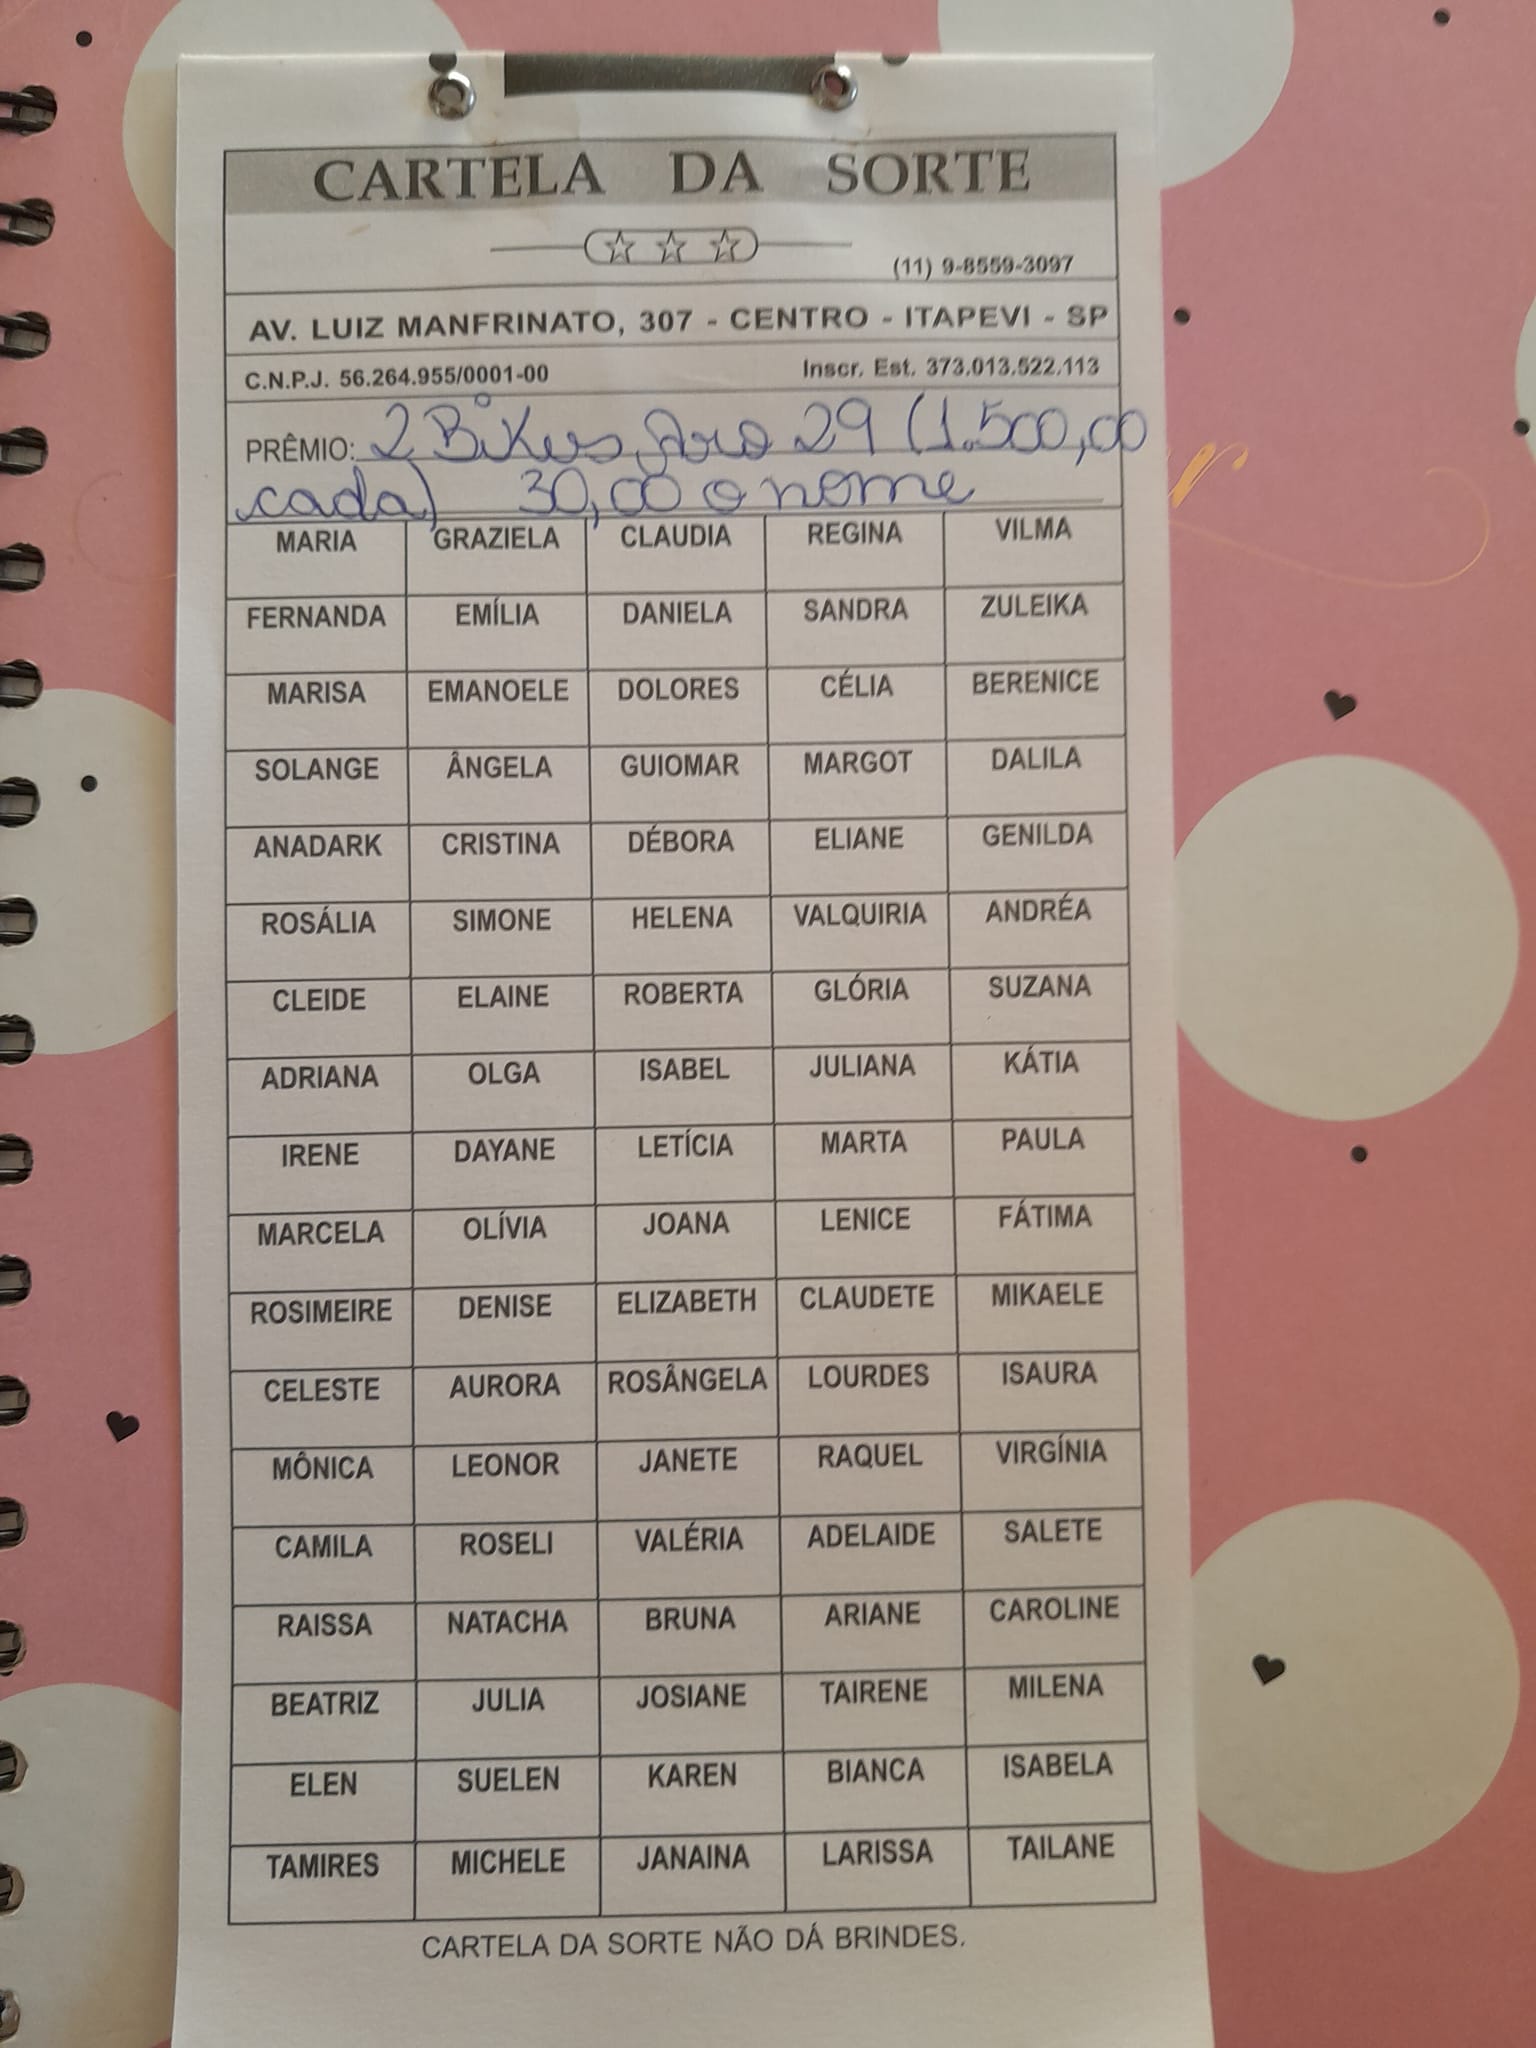 CARTELA DA SORTE
(11) 9-8559-3097
AV. LUIZ MANFRINATO, 307 - CENTRO - ITAPEVI - SP
C.N.P.J. 56.264.955/0001-00 Inscr. Est. 373.013.522.113
PRÊMIO: 2 Bikes, Aro 29 (1.500,00
cada) 30,00 o nome
MARIA GRAZIELA CLAUDIA REGINA VILMA
FERNANDA EMÍLIA DANIELA SANDRA ZULEIKA
MARISA EMANOELE DOLORES CÉLIA BERENICE
SOLANGE ÂNGELA GUIOMAR MARGOT DALILA
ANADARK CRISTINA DÉBORA ELIANE GENILDA
ROSÁLIA SIMONE HELENA VALQUIRIA ANDRÉA
CLEIDE ELAINE ROBERTA GLÓRIA SUZANA
ADRIANA OLGA ISABEL JULIANA KÁTIA
IRENE DAYANE LETÍCIA MARTA PAULA
MARCELA OLÍVIA JOANA LENICE FÁTIMA
ROSIMEIRE DENISE ELIZABETH CLAUDETE MIKAELE
CELESTE AURORA ROSÂNGELA LOURDES ISAURA
MÔNICA LEONOR JANETE RAQUEL VIRGÍNIA
CAMILA ROSELI VALÉRIA ADELAIDE SALETE
RAISSA NATACHA BRUNA ARIANE CAROLINE
BEATRIZ JULIA JOSIANE TAIRENE MILENA
ELEN SUELEN KAREN BIANCA ISABELA
TAMIRES MICHELE JANAINA LARISSA TAILANE
CARTELA DA SORTE NÃO DÁ BRINDES.